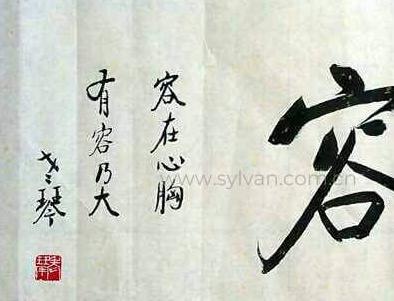 容
容在心胸
有容乃大
琴
www.sylvan.com.cn